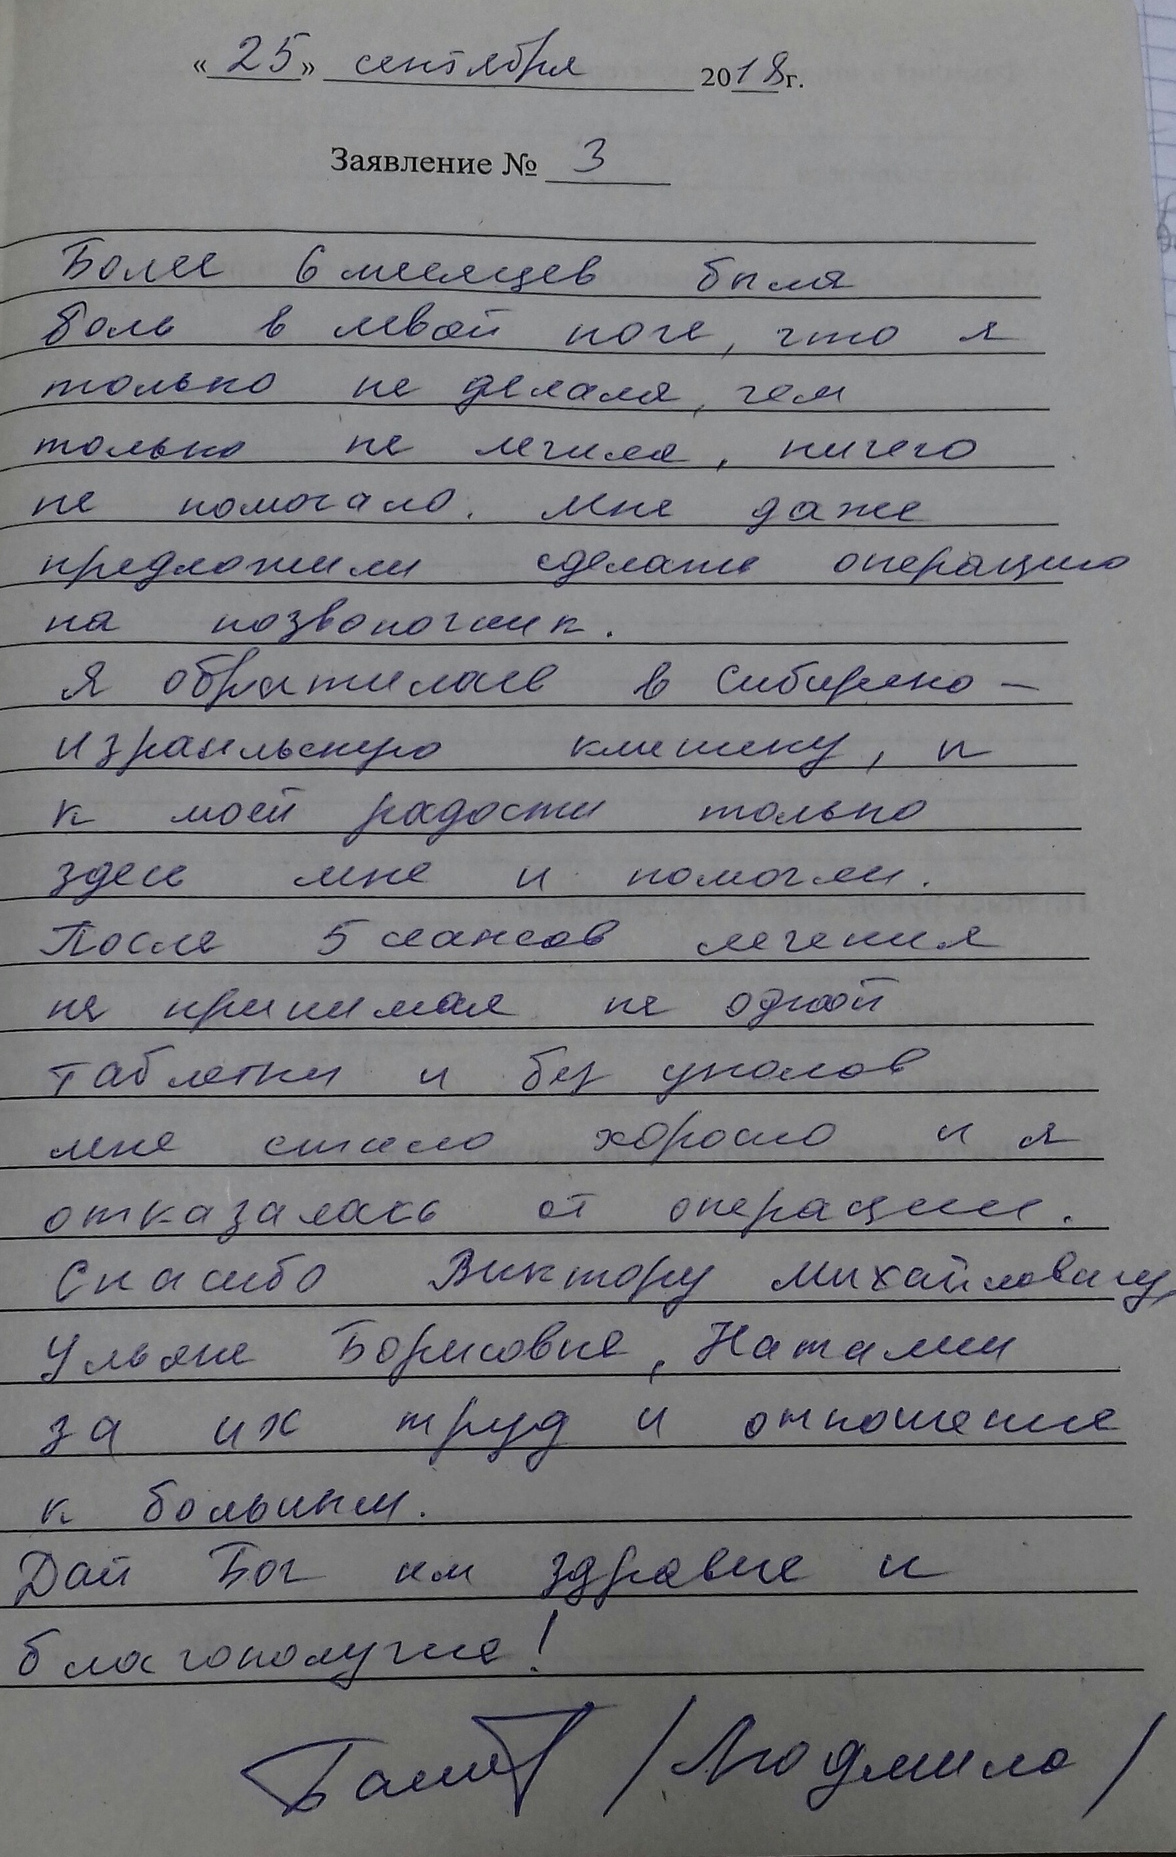 « 25 » сентября 2018г.
Заявление № 3
Более 6 месяцев была
боль в левой ноге, что я
только не делала, чем
только не лечила, ничего
не помогало. Мне даже
предложили сделать операцию
на позвоночник.
Я обратилась в Сибирско-
израильскую клинику, и
к моей радости только
здесь мне и помогли.
После 5 сеансов лечения
не принимая не одной
таблетки и без уколов
мне стало хорошо и я
отказалась от операции.
Спасибо Виктору Михайловичу,
Ульяне Борисовне, Наталии
за их труд и отношение
к больным.
Дай Бог им здравие и
благополучие!
/Людмила/